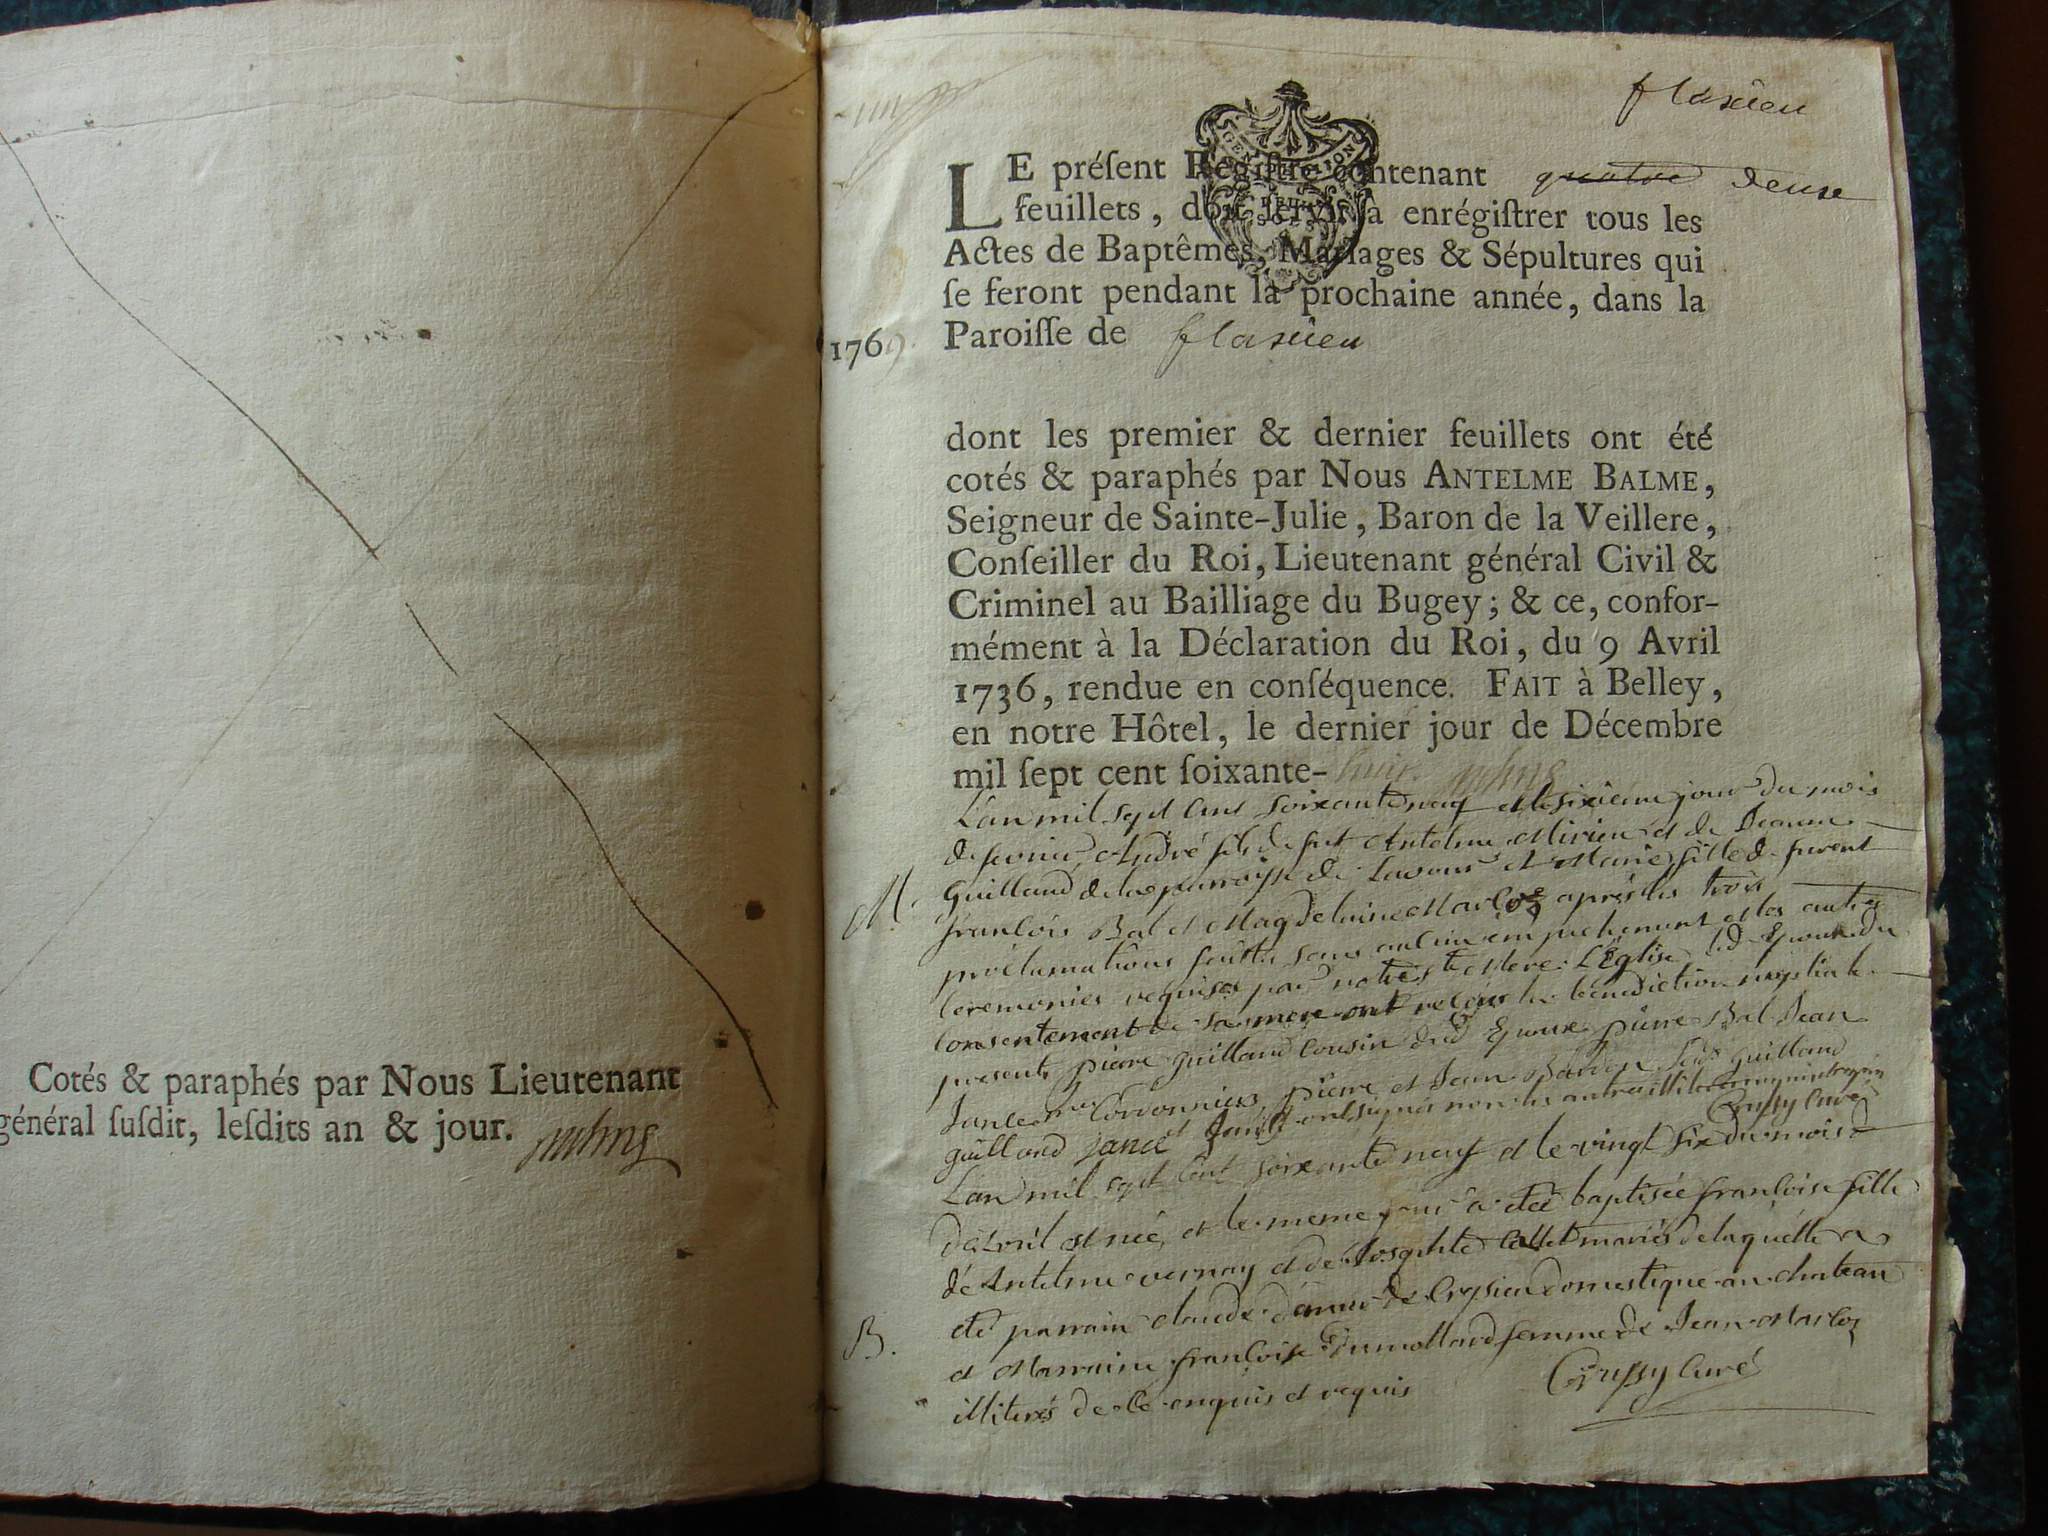 Cotés & paraphés par Nous Lieutenant
général susdit, lesdits an & jour.
flaxieu
LE préſent Régiſtre contenant quatre deux
feuillets, doit ſervir à enrégiſtrer tous les
Actes de Baptêmes, Mariages & Sépultures qui
ſe feront pendant la prochaine année, dans la
1769. Paroiſſe de flaxieu
dont les premier & dernier feuillets ont été
cotés & paraphés par Nous ANTELME BALME,
Seigneur de Sainte-Julie, Baron de la Veillere,
Conſeiller du Roi, Lieutenant général Civil &
Criminel au Bailliage du Bugey; & ce, confor-
mément à la Déclaration du Roi, du 9 Avril
1736, rendue en conſéquence. FAIT à Belley,
en notre Hôtel, le dernier jour de Décembre
mil ſept cent ſoixante-huit.
L'an mil sept cent soixante neuf et le sixieme jour du mois
de fevrier André fils de fut Antelme Mirieu et de Jeanne
M. Guilland de la parroisse de Lavour et Marie fille de furent
françois Bal et Magdelaine Marloz après les trois
proclamations faittes sans aucun empechement et les autres
ceremonies requises par notre ste Mere L'Eglise led Epoux du
consentement de sa mere ont reçus la benediction nuptiale
presents pierre guilland cousin dud Epoux pierre Bal Jean
Jance cordonniers pierre et Jean
guilland jance ont signés non les autres illiterés
Crussy Curé
L'an mil sept cent soixante neuf et le vingt six du mois
d'avril est née et le meme jour a été baptisée françoise fille
de Antelme vernay et de Josephte Collet mariés de laquelle a
B. été parrain claude de Crysieu domestique au chateau
et Marraine françoise Dumollard femme de Jean Marloz
illiterés de ce enquis et requis
Crussy Curé